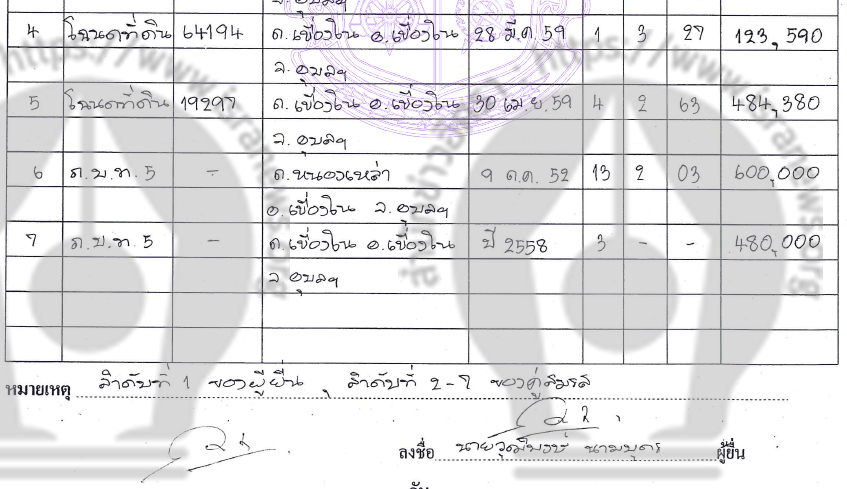 จ. อุบลฯ
4 โฉนดที่ดิน 64194 ต.เขื่องใน อ.เขื่องใน 28 มี.ค. 59 1 3 27 123,590
จ. อุบลฯ
5 โฉนดที่ดิน 19297 ต.เขื่องใน อ.เขื่องใน 30 เม.ย. 59 4 2 63 484,380
จ. อุบลฯ
6 ภ.บ.ท. 5 - ต.หนองเหล่า 9 ต.ค. 52 13 2 03 600,000
อ.เขื่องใน จ.อุบลฯ
7 ภ.บ.ท. 5 - ต.เขื่องใน อ.เขื่องใน ปี 2558 3 - - 480,000
จ อุบลฯ
หมายเหตุ ลำดับที่ 1 ของผู้ยื่น , ลำดับที่ 2-7 ของคู่สมรส
ลงชื่อ นายวุฒิพงษ์ นามบุตร ผู้ยื่น
https://www.isranews.org
https://www.isranews.org